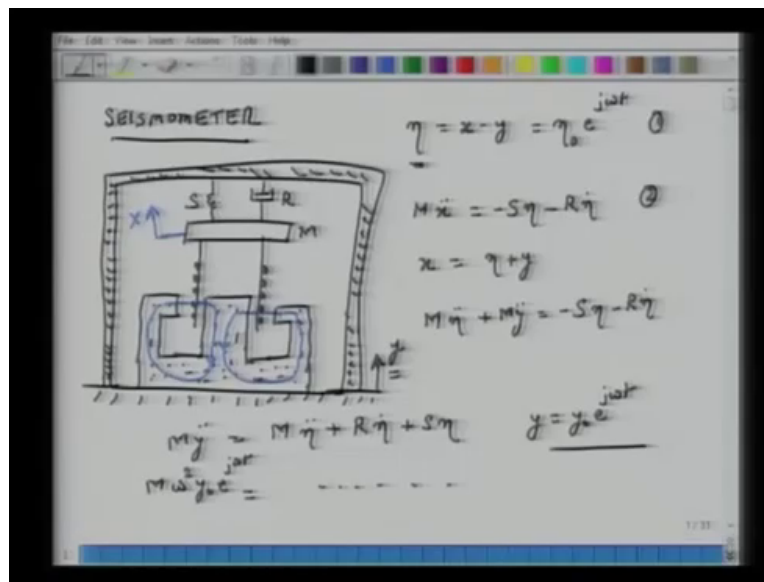 File Edit View Insert Actions Tools Help
SEISMOMETER
η = x - y = η₀ e^{jωt} ①
S R
X M
Mẍ = -Sη - Rη̇ ②
x = η + y
Mη̈ + Mÿ = -Sη - Rη̇
y
Mÿ = Mη̈ + Rη̇ + Sη
y = y₀ e^{jωt}
Mω² y₀ e^{jωt} = - - - - - - -